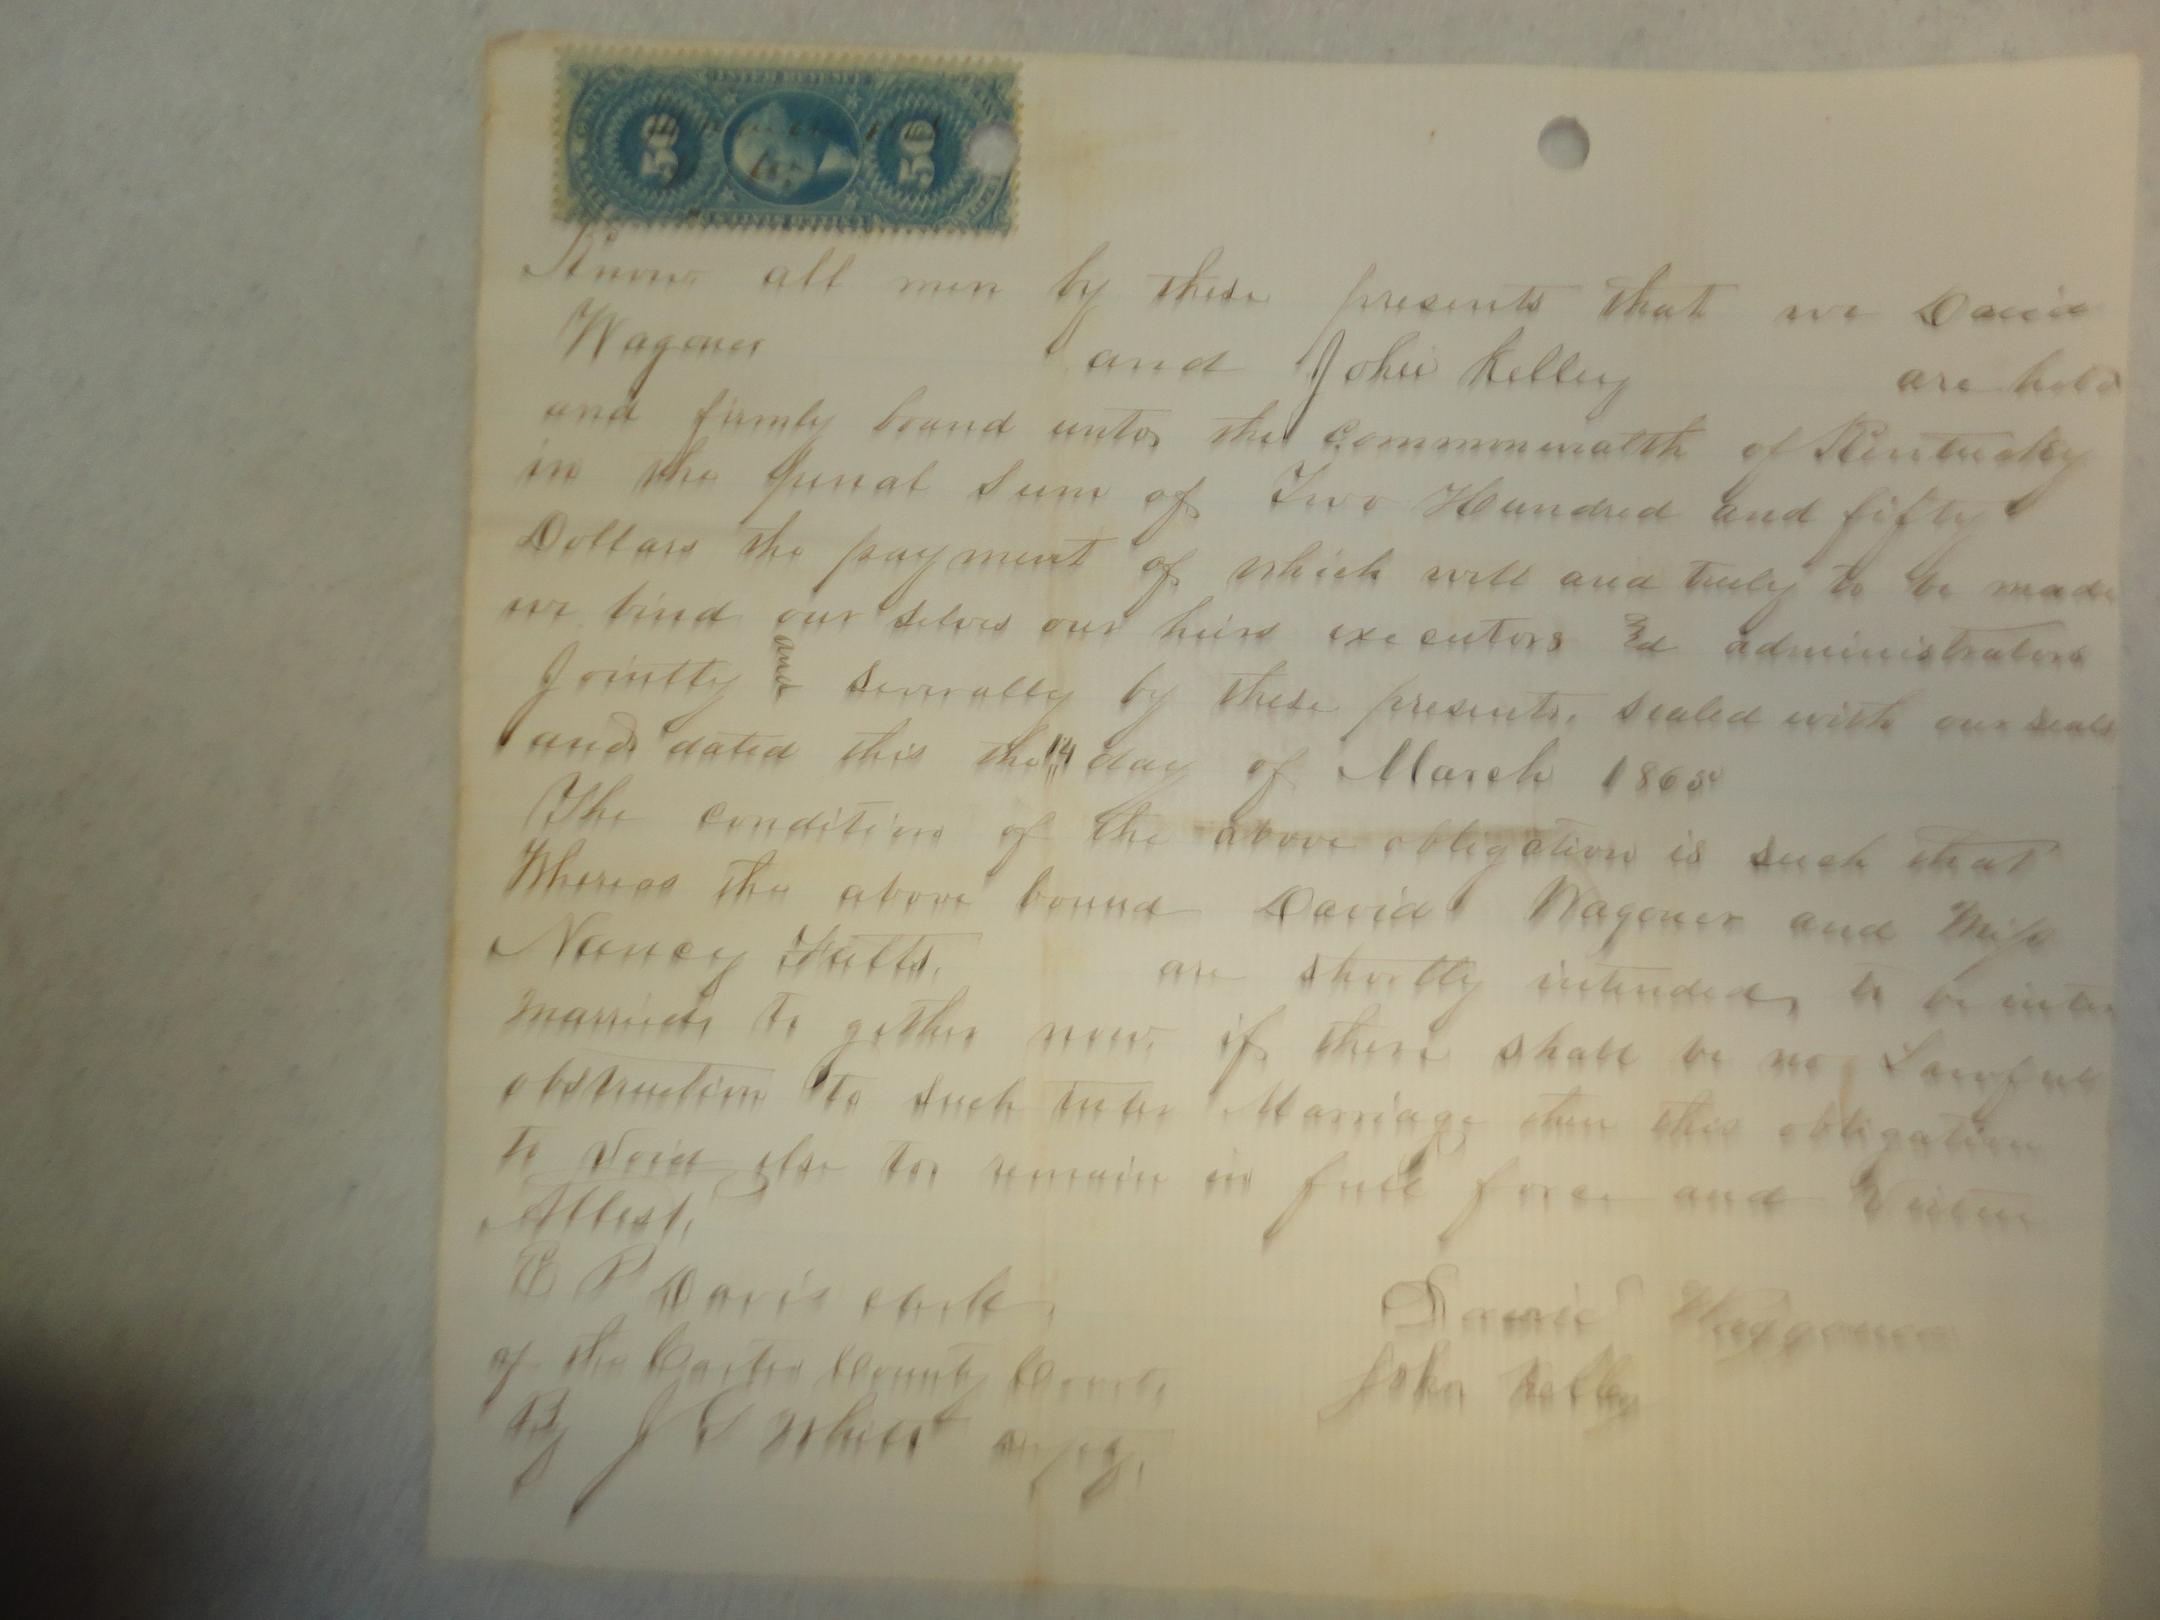 INTER. REVENUE
50 50
Know all men by these presents that we David
Wagoner and John Kelley are held
and firmly bound unto the commonwealth of Kentucky
in the penal sum of Two Hundred and fifty
Dollars the payment of which well and truly to be made
we bind our selves our heirs executors & administrators
Jointly and severally by these presents, sealed with our seals
and dated this the 14 day of March 1865
The condition of the above obligation is such that
Whereas the above bound David Wagoner and Miss
Nancy Fults, are shortly intended to be inter
married to gether now if there shall be no Lawful
obstruction to such inter Marriage then this obligation
to void else to remain in full force and Virtue
Attest,
E P Davis clerk David Waggoner
of the Carter County Court, John Kelley
By J S Whitt